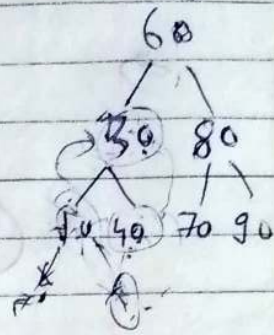 60
30 80
10 40 70 90